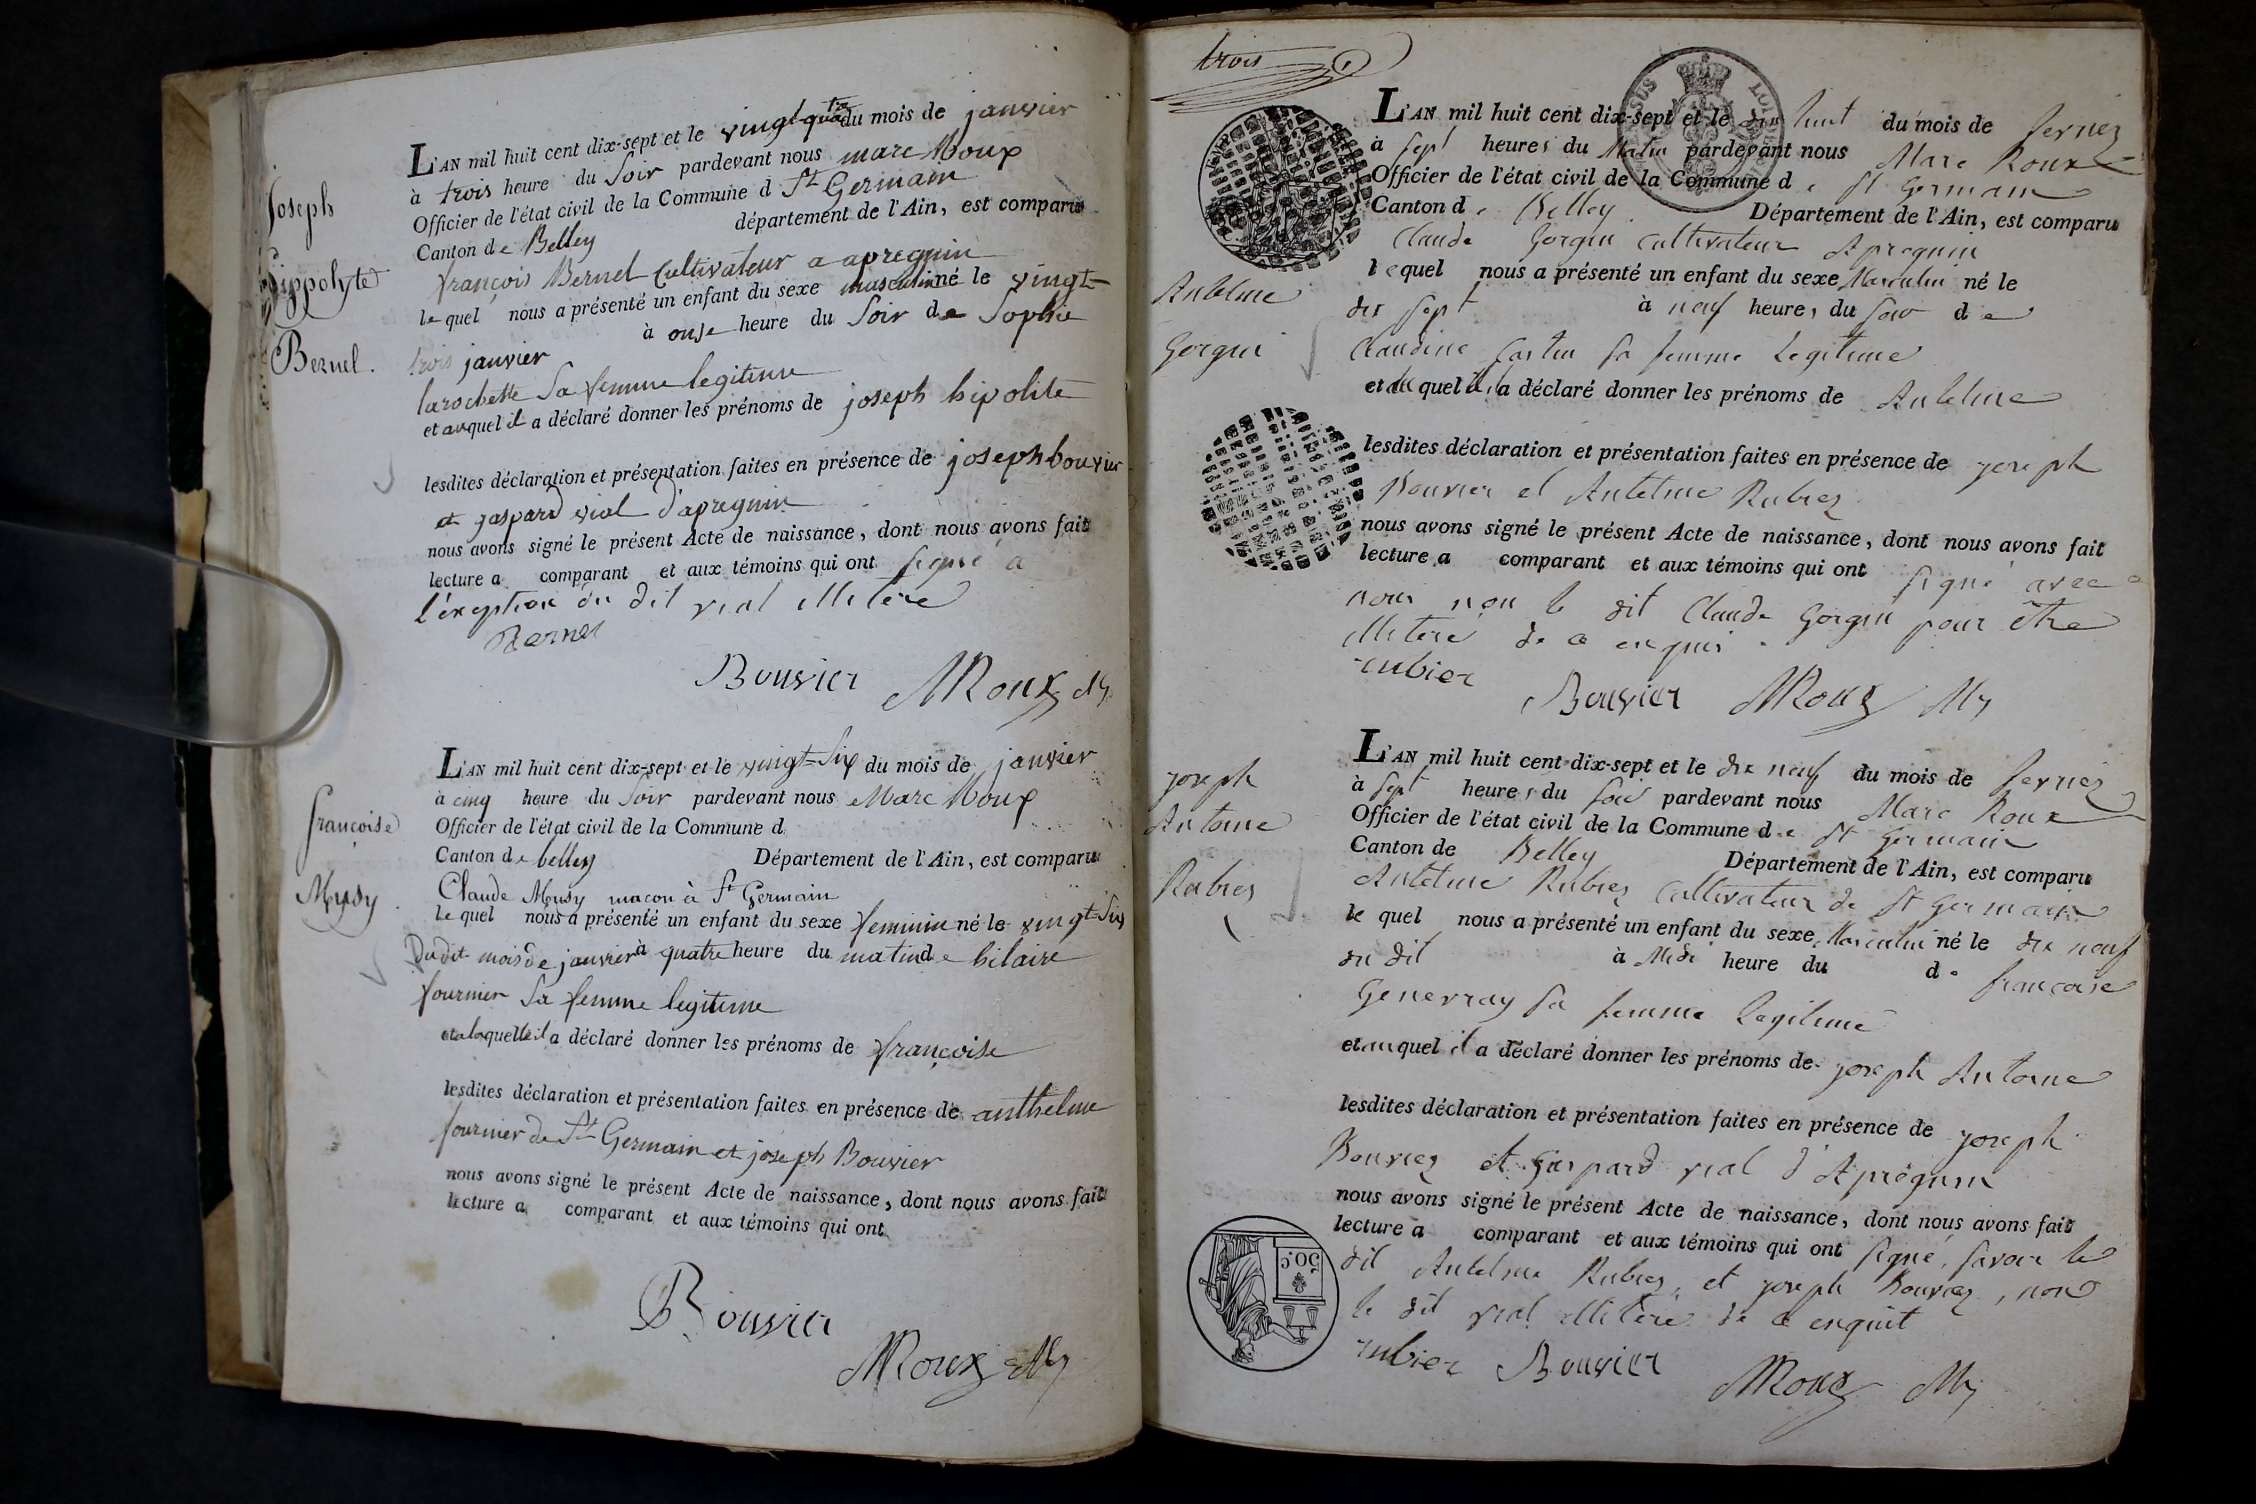 Joseph
hippolyte
Bernel.
L'AN mil huit cent dix-sept et le vingt-quatre du mois de janvier
à trois heure du Soir pardevant nous marc Roux
Officier de l'état civil de la Commune d St Germain
Canton de Belley département de l'Ain, est comparu
françois Bernel Cultivateur a apregnin
le quel nous a présenté un enfant du sexe masculin né le vingt-
trois janvier à onse heure du Soir de Sophie
larochette Sa femme legitime
et auquel il a déclaré donner les prénoms de joseph hipolite
lesdites déclaration et présentation faites en présence de joseph bouvier
et gaspard vial d'apregnin
nous avons signé le présent Acte de naissance, dont nous avons fait
lecture a comparant et aux témoins qui ont signé a
l'exeption du dit vial illitéré
Bernel
Bouvier MRoux My
françoise
Musy
L'AN mil huit cent dix-sept et le vingt-Six du mois de janvier
à cinq heure du Soir pardevant nous Marc Roux
Officier de l'état civil de la Commune d
Canton de belley Département de l'Ain, est comparu
Claude Musy macon à St Germain
le quel nous a présenté un enfant du sexe feminin né le vingt-Six
Dudit mois de janvier à quatre heure du matin de hilaire
fournier Sa femme legitime
et a laquelle il a déclaré donner les prénoms de françoise
lesdites déclaration et présentation faites en présence de anthelme
fournier de St Germain et joseph Bouvier
nous avons signé le présent Acte de naissance, dont nous avons fait
lecture a comparant et aux témoins qui ont
Bouvier
MRoux My
trois
Antelme
Gorgui
L'AN mil huit cent dix-sept et le dix huit du mois de fevrier
à Sept heures du Matin pardevant nous Marc Roux
Officier de l'état civil de la Commune de St Germain
Canton de Belley Département de l'Ain, est comparu
Claude Gorgui Cultivateur Apregnin
lequel nous a présenté un enfant du sexe Masculin né le
dix Sept à neuf heures du Soir de
Claudine sa femme Legitime
et quel il a déclaré donner les prénoms de Antelme
lesdites déclaration et présentation faites en présence de joseph
Bouvier et Antelme Rubier
nous avons signé le présent Acte de naissance, dont nous avons fait
lecture a comparant et aux témoins qui ont signé avec
nous non le dit Claude Gorgui pour être
illiteré de ce enquis
rubier
Bouvier MRoux My
joseph
Antoine
Rubier
L'AN mil huit cent dix-sept et le dix neuf du mois de fevrier
à Sept heures du Soir pardevant nous Marc Roux
Officier de l'état civil de la Commune de St Germain
Canton de Belley Département de l'Ain, est comparu
Antelme Rubier Cultivateur de St Germain
le quel nous a présenté un enfant du sexe Masculin né le dix neuf
du dit à Midi heure du de francoise
Genevray sa femme Legitime
et auquel il a déclaré donner les prénoms de joseph Antoine
lesdites déclaration et présentation faites en présence de joseph
Bouvier et Gaspard vial d'Apregnin
nous avons signé le présent Acte de naissance, dont nous avons fait
lecture a comparant et aux témoins qui ont signé, savoir le
dit Antelme Rubier, et joseph Bouvier, non
le dit vial illiteré de ce enquit
rubier Bouvier
MRoux My
50c